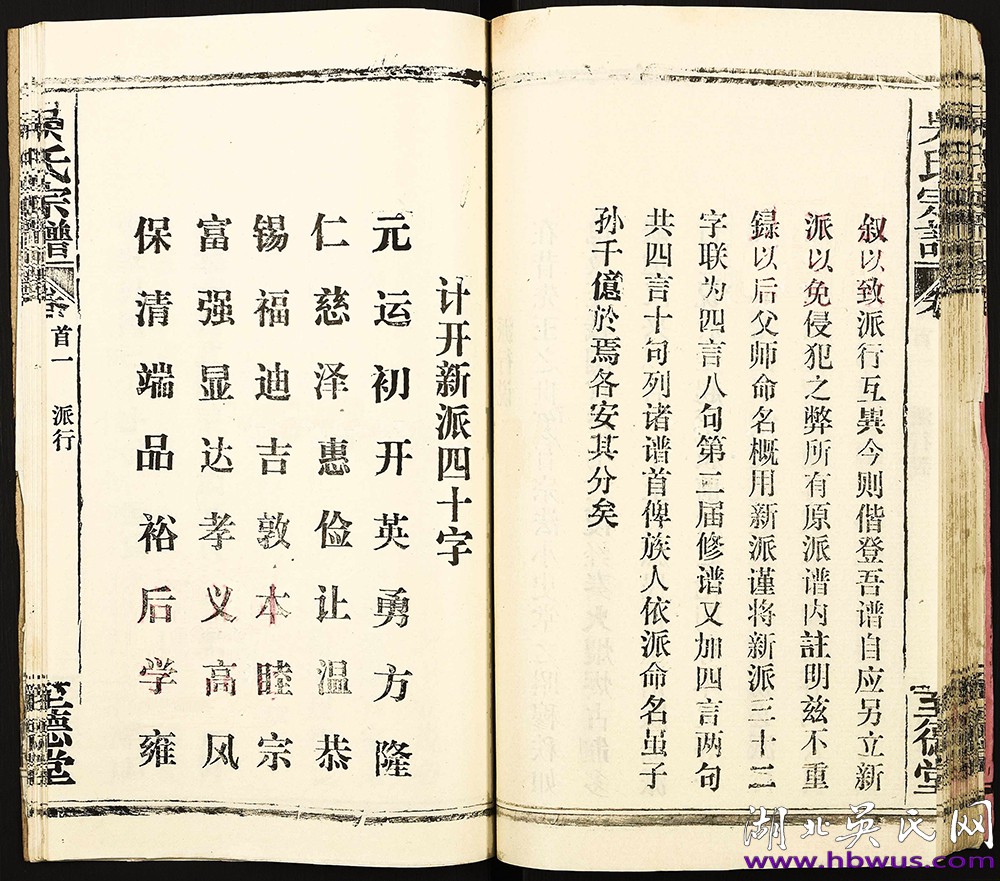 吴氏宗谱
至德堂
叙以致派行互異今则偕登吾谱自应另立新
派以免侵犯之弊所有原派谱内註明兹不重
録以后父师命名概用新派谨将新派三十二
字联为四言八句第二届修谱又加四言两句
共四言十句列诸谱首俾族人依派命名虽子
孙千億於焉各安其分矣
计开新派四十字
元运初开英勇方隆
仁慈泽惠俭让温恭
锡福迪吉敦本睦宗
富强显达孝义高风
保清端品裕后学雍
吴氏宗譜
卷首一
派行
至德堂
湖北吴氏网
www.hbwus.com